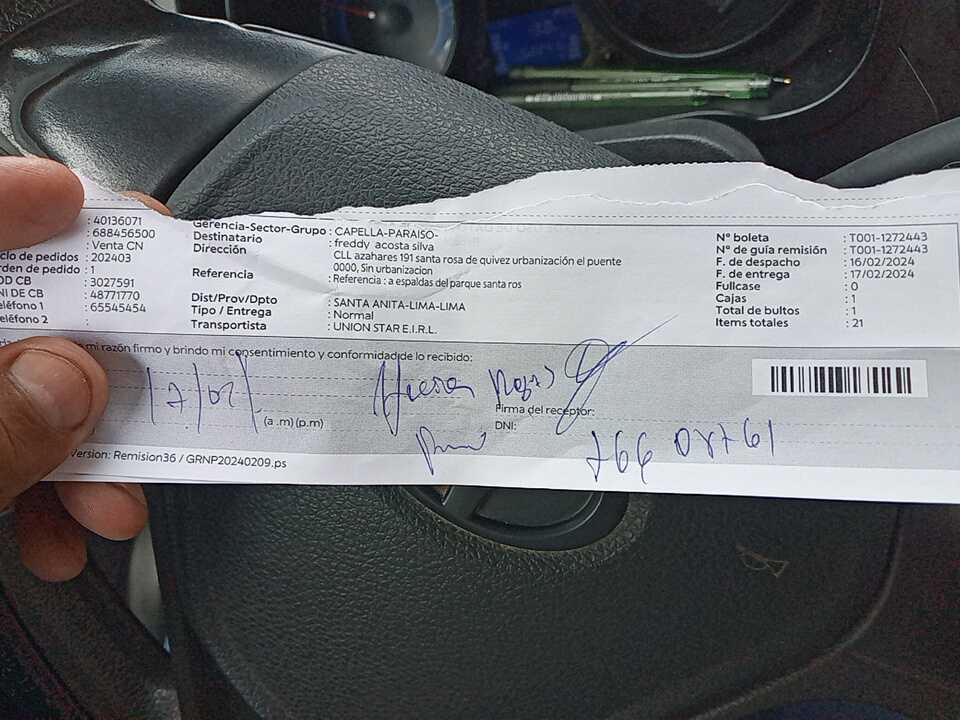 : 40136071
: 688456500
: Venta CN
clo de pedidos : 202403
rden de pedido : 1
OD CB : 3027591
NI DE CB : 48771770
eléfono 1 : 65545454
eléfono 2 :
Gerencia-Sector-Grupo : CAPELLA-PARAISO-
Destinatario : freddy acosta silva
Dirección : CLL azahares 191 santa rosa de quivez urbanización el puente
0000, Sin urbanizacion
Referencia : Referencia : a espaldas del parque santa ros
Dist/Prov/Dpto : SANTA ANITA-LIMA-LIMA
Tipo / Entrega : Normal
Transportista : UNION STAR E.I.R.L.
N° boleta : T001-1272443
N° de guía remisión : T001-1272443
F. de despacho : 16/02/2024
F. de entrega : 17/02/2024
Fullcase : 0
Cajas : 1
Total de bultos : 1
Items totales : 21
mi razón firmo y brindo mi consentimiento y conformidad de lo recibido:
17/02/
(a .m) (p.m)
Firma del receptor:
DNI:
Version: Remision36 / GRNP20240209.ps